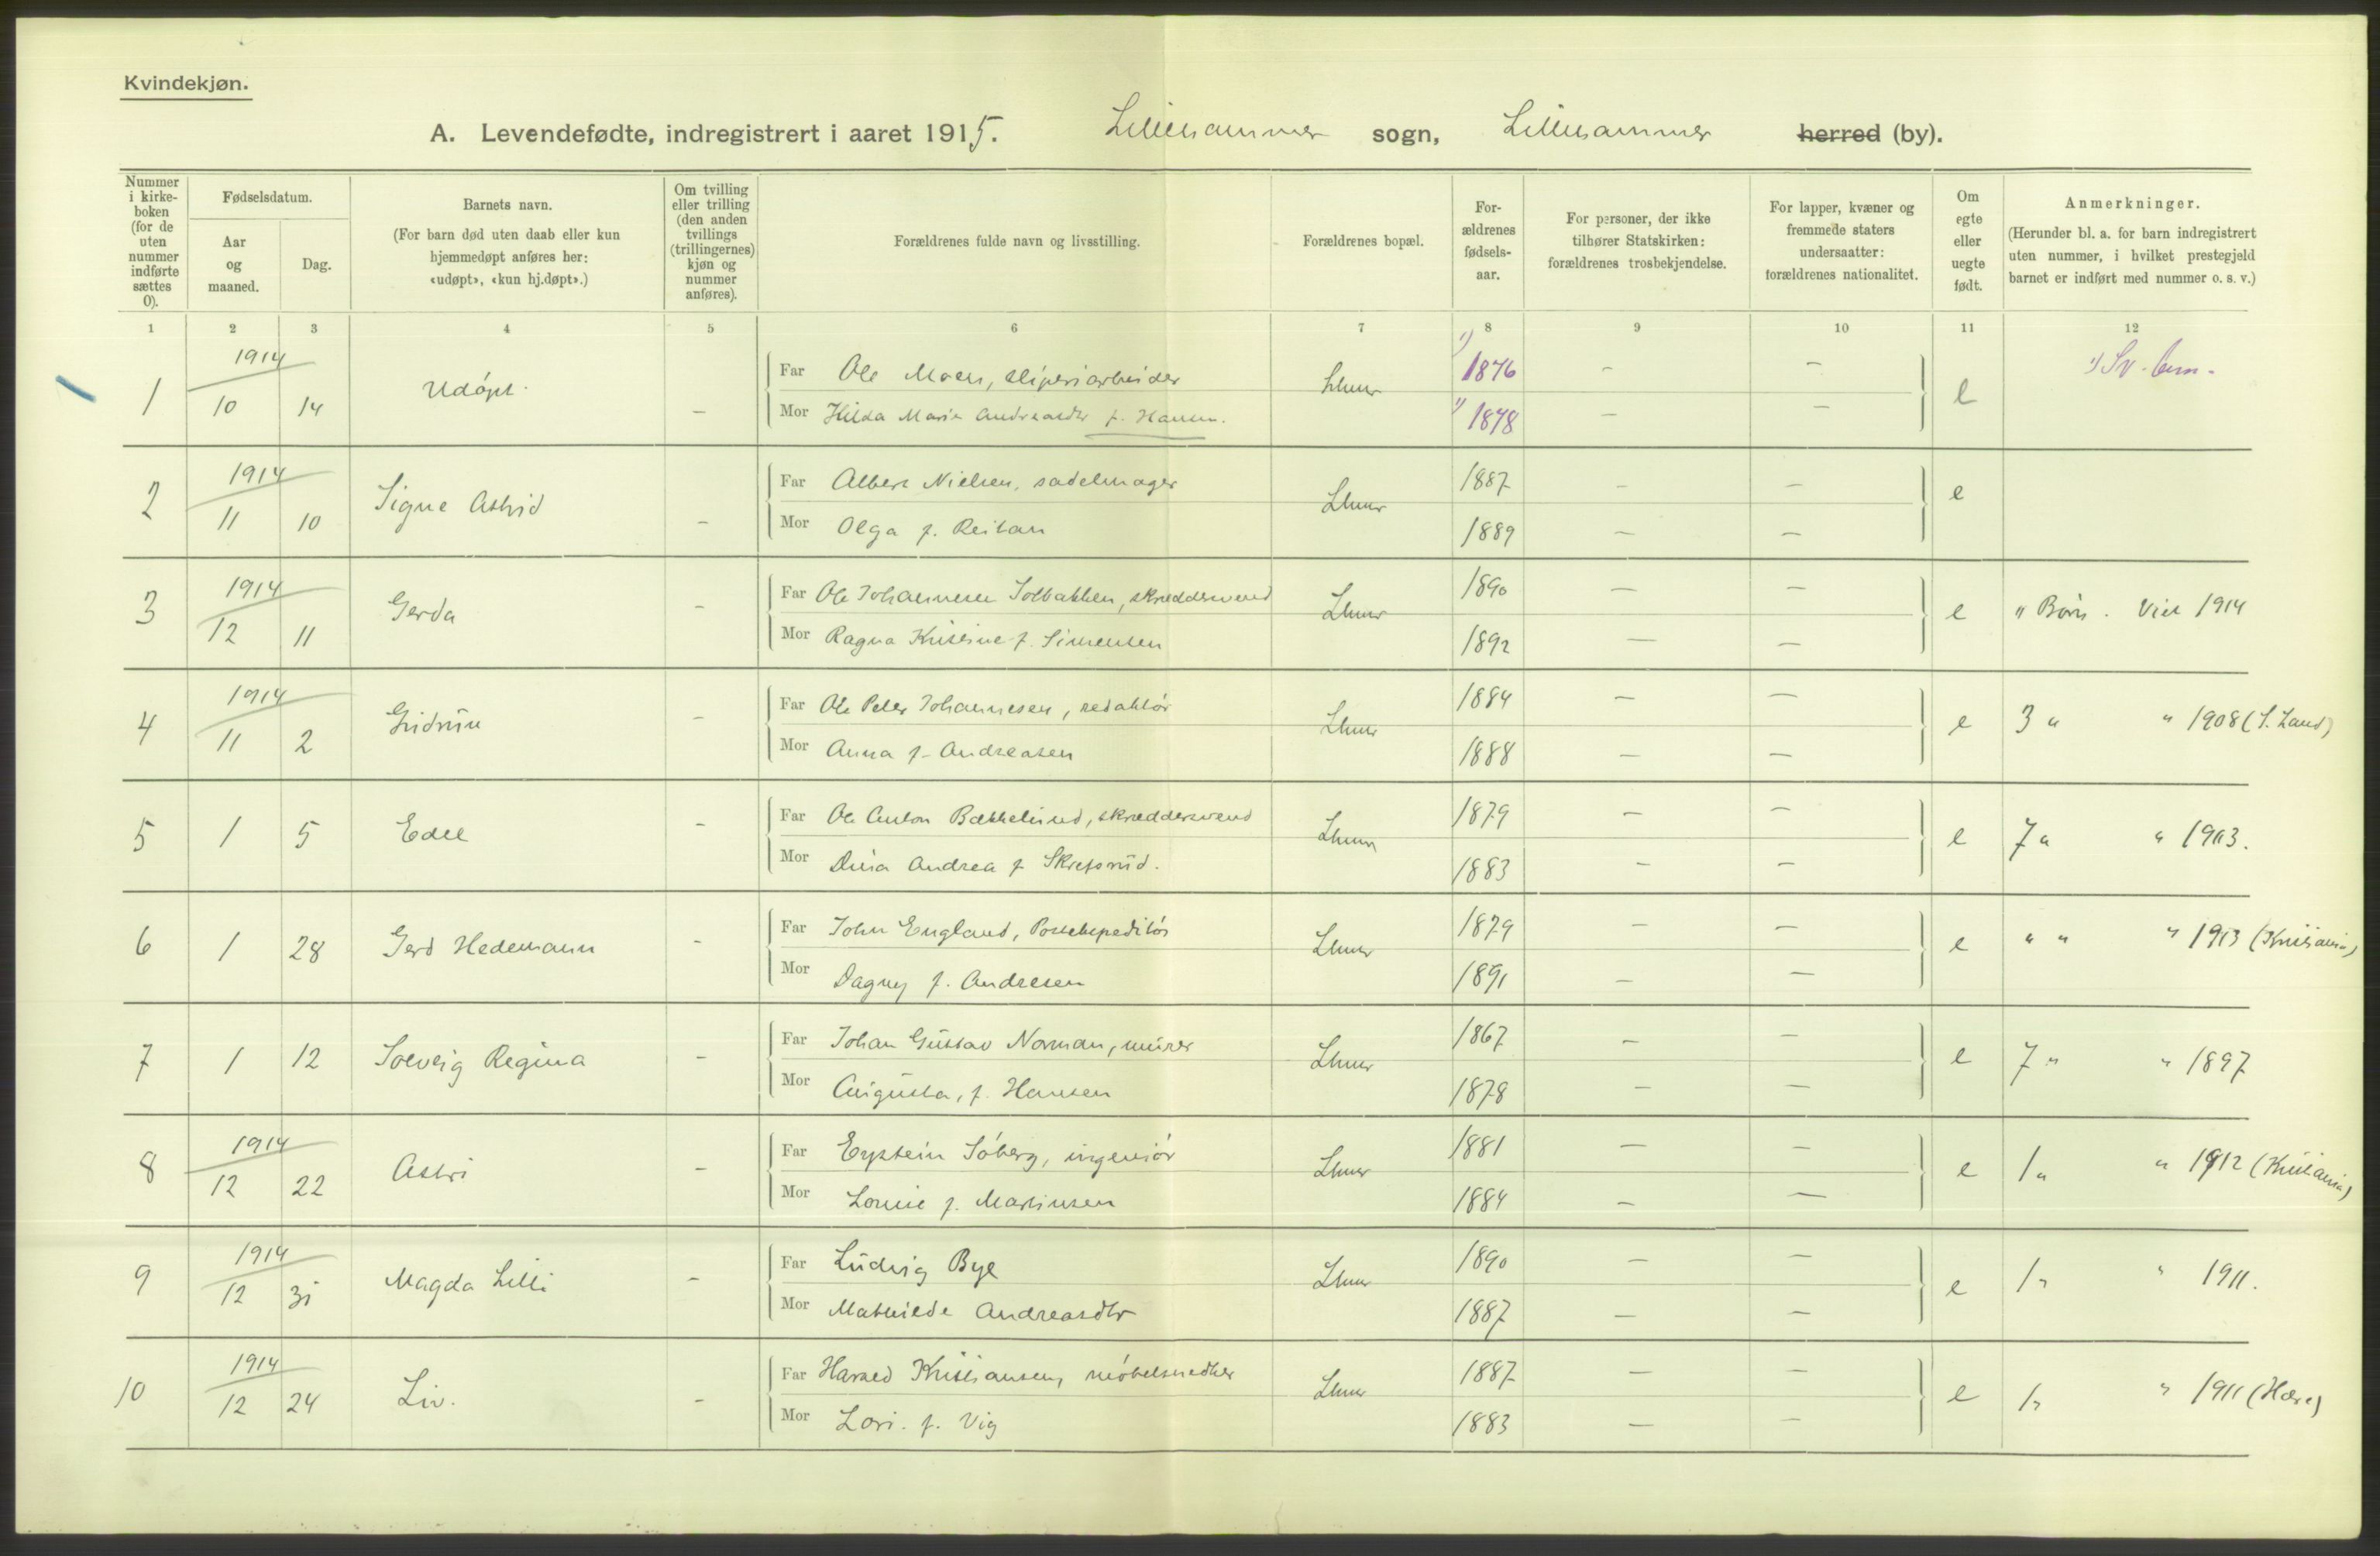 Kvindekjøn.
A. Levendefødte, indregistrert i aaret 1915. Lillehammer sogn, Lillehammer herred (by).
Nummer i kirke-boken (for de uten nummer indførte sættes 0).
Fødselsdatum.
Aar og maaned.
Dag.
Barnets navn.
(For barn død uten daab eller kun hjemmedøpt anføres her: «udøpt», «kun hj.døpt».)
Om tvilling eller trilling (den anden tvillings (trillingernes) kjøn og nummer anføres).
Forældrenes fulde navn og livsstilling.
Forældrenes bopæl.
For-ældrenes fødsels-aar.
For personer, der ikke tilhører Statskirken: forældrenes trosbekjendelse.
For lapper, kvæner og fremmede staters undersaatter: forældrenes nationalitet.
Om egte eller uegte født.
Anmerkninger.
(Herunder bl. a. for barn indregistrert uten nummer, i hvilket prestegjeld barnet er indført med nummer o. s. v.)
1 2 3 4 5 6 7 8 9 10 11 12
1 1914 10 14 Udøpt. – Far Ole Moen, sliperiarbeider Lhmr 1) 1876 – – e 1)
Mor Hilda Marie Andreasdtr f. Hansen. 1) 1878 – –
2 1914 11 10 Signe Astrid – Far Albert Nielsen, sadelmager Lhmr 1887 – – e
Mor Olga f. Reitan 1889 – –
3 1914 12 11 Gerda – Far Ole Johannesen Solbakken, skræddersvend Lhmr 1890 – – e " Børn. Viet 1914
Mor Ragna Kristine f. Simensen 1892 – –
4 1914 11 2 Gudrun – Far Ole Peter Johannesen, redaktør Lhmr 1884 – – e 3 " " 1908 (S. Land)
Mor Anna f. Andreasen 1888 – –
5 1 5 Edel – Far Ole Anton Bækkelund, skræddersvend Lhmr 1879 – – e 7 " " 1903.
Mor Dina Andrea f Skrefsrud. 1883 – –
6 1 28 Gerd Hedemann – Far John England, Postekspeditør Lhmr 1879 – – e " " " 1913 (Kristiania)
Mor Dagny f. Andresen 1891 – –
7 1 12 Solveig Regina – Far Johan Gustav Norman, murer Lhmr 1867 – – e 7 " " 1897
Mor Augusta, f. Hansen 1878 – –
8 1914 12 22 Astri – Far Eystein Søberg, ingeniør Lhmr 1881 – – e 1 " " 1912 (Kristiania)
Mor Louise f. Martinsen 1884 – –
9 1914 12 31 Magda Lilli – Far Ludvig Bye Lhmr 1890 – – e 1 " " 1911.
Mor Mathilde Andreasdtr 1887 – –
10 1914 12 24 Liv. – Far Harald Kristiansen, møbelsnedker Lhmr 1887 – – e 1 " " 1911 (Horg)
Mor Lovi. f. Vig 1883 – –